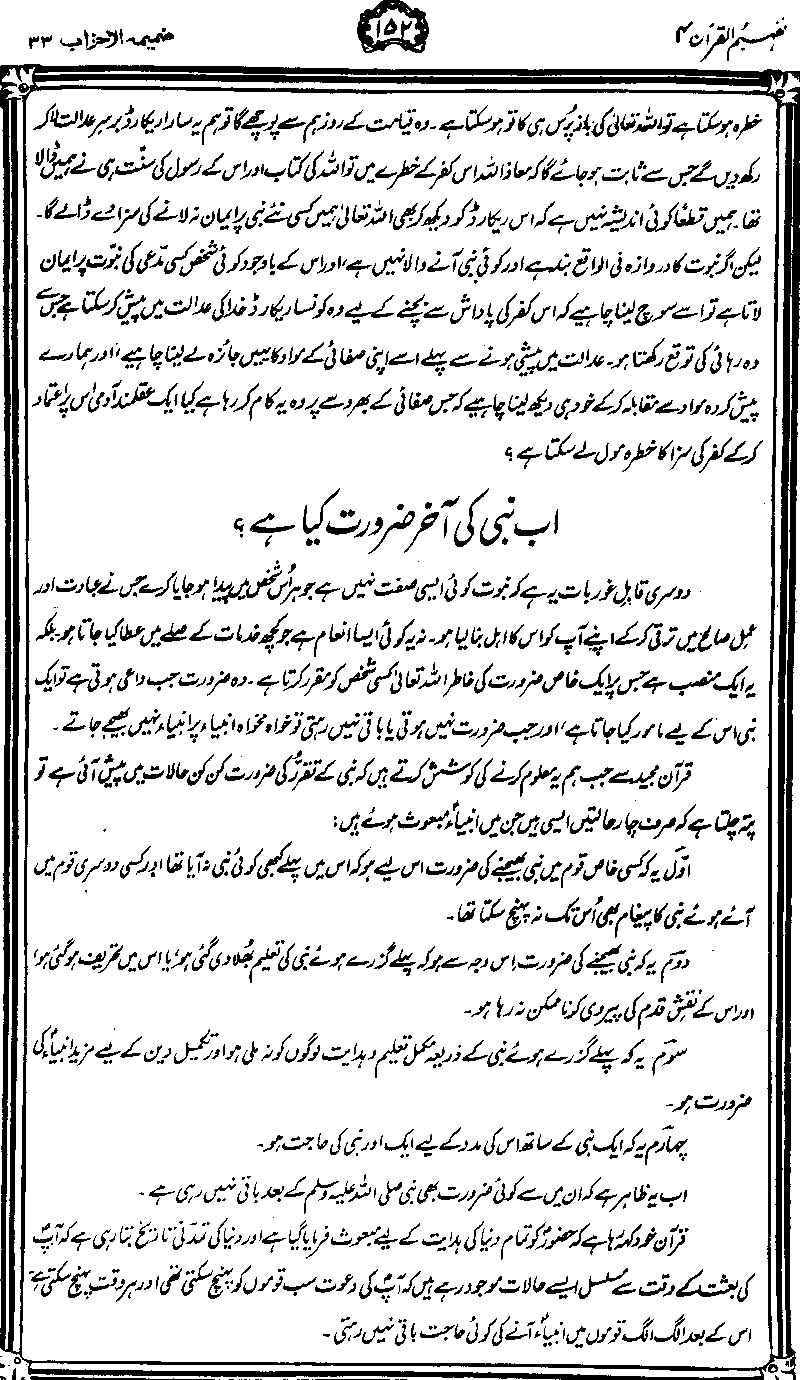 تفہیم القرآن ۴
۱۵۲
ضمیمہ الاحزاب ۳۳
خطرہ ہو سکتا ہے تو اللہ تعالیٰ کی باز پُرس ہی کا تو ہو سکتا ہے۔ وہ قیامت کے روز ہم سے پوچھے گا تو ہم یہ سارا ریکارڈ برسرِ عدالت لا کر
رکھ دیں گے جس سے ثابت ہو جائے گا کہ معاذ اللہ اس کفر کے خطرے میں تو اللہ کی کتاب اور اس کے رسول کی سنّت ہی نے ہمیں ڈالا
تھا۔ ہمیں قطعًا کوئی اندیشہ نہیں ہے کہ اس ریکارڈ کو دیکھ کر بھی اللہ تعالیٰ ہمیں کسی نئے نبی پر ایمان نہ لانے کی سزا دے ڈالے گا۔
لیکن اگر نبوت کا دروازہ فی الواقع بند ہے اور کوئی نبی آنے والا نہیں ہے، اور اس کے باوجود کوئی شخص کسی مدّعی کی نبوّت پر ایمان
لاتا ہے تو اسے سوچ لینا چاہیے کہ اس کفر کی پاداش سے بچنے کے لیے وہ کونسا ریکارڈ خدا کی عدالت میں پیش کر سکتا ہے جس سے
وہ رہائی کی توقع رکھتا ہو۔ عدالت میں پیشی ہونے سے پہلے اسے اپنی صفائی کے مواد کا یہیں جائزہ لے لینا چاہیے، اور ہمارے
پیش کردہ مواد سے مقابلہ کرکے خود ہی دیکھ لینا چاہیے کہ جس صفائی کے بھروسے پر وہ یہ کام کر رہا ہے کیا ایک عقلمند آدمی اس پر اعتماد
کرکے کفر کی سزا کا خطرہ مول لے سکتا ہے؟
اب نبی کی آخر ضرورت کیا ہے؟
دوسری قابلِ غور بات یہ ہے کہ نبوت کوئی ایسی صفت نہیں ہے جو ہر اُس شخص میں پیدا ہو جایا کرے جس نے عبادت اور
عملِ صالح میں ترقی کرکے اپنے آپ کو اس کا اہل بنا لیا ہو۔ نہ یہ کوئی ایسا انعام ہے جو کچھ خدمات کے صلے میں عطا کیا جاتا ہو۔ بلکہ
یہ ایک منصب ہے جس پر ایک خاص ضرورت کی خاطر اللہ تعالیٰ کسی شخص کو مقرر کرتا ہے۔ وہ ضرورت جب داعی ہوتی ہے تو ایک
نبی اس کے لیے مامور کیا جاتا ہے، اور جب ضرورت نہیں ہوتی یا باقی نہیں رہتی تو خواہ مخواہ انبیاء پر انبیاء نہیں بھیجے جاتے۔
قرآن مجید سے جب ہم یہ معلوم کرنے کی کوشش کرتے ہیں کہ نبی کے تقرُّر کی ضرورت کن کن حالات میں پیش آئی ہے تو
پتہ چلتا ہے کہ صرف چار حالتیں ایسی ہیں جن میں انبیاءؑ مبعوث ہوئے ہیں:
اوّل یہ کہ کسی خاص قوم میں نبی بھیجنے کی ضرورت اس لیے ہو کہ اس میں پہلے کبھی کوئی نبی نہ آیا تھا اور کسی دوسری قوم میں
آئے ہوئے نبی کا پیغام بھی اُس تک نہ پہنچ سکتا تھا۔
دوم یہ کہ نبی بھیجنے کی ضرورت اِس وجہ سے ہو کہ پہلے گزرے ہوئے نبی کی تعلیم بھلا دی گئی ہو، یا اس میں تحریف ہو گئی ہو،
اور اس کے نقشِ قدم کی پیروی کرنا ممکن نہ رہا ہو۔
سوم یہ کہ پہلے گزرے ہوئے نبی کے ذریعہ مکمل تعلیم و ہدایت لوگوں کو نہ ملی ہو اور تکمیل دین کے لیے مزید انبیاءؑ کی
ضرورت ہو۔
چہارم یہ کہ ایک نبی کے ساتھ اس کی مدد کے لیے ایک اور نبی کی حاجت ہو۔
اب یہ ظاہر ہے کہ ان میں سے کوئی ضرورت بھی نبی صلی اللہ علیہ وسلم کے بعد باقی نہیں رہی ہے۔
قرآن خود کہہ رہا ہے کہ حضورؐ کو تمام دنیا کی ہدایت کے لیے مبعوث فرمایا گیا ہے اور دنیا کی تمدّنی تاریخ بتا رہی ہے کہ آپؐ
کی بعثت کے وقت سے مسلسل ایسے حالات موجود رہے ہیں کہ آپؐ کی دعوت سب قوموں کو پہنچ سکتی تھی اور ہر وقت پہنچ سکتی ہے۔
اس کے بعد الگ الگ قوموں میں انبیاءؑ آنے کی کوئی حاجت باقی نہیں رہتی۔